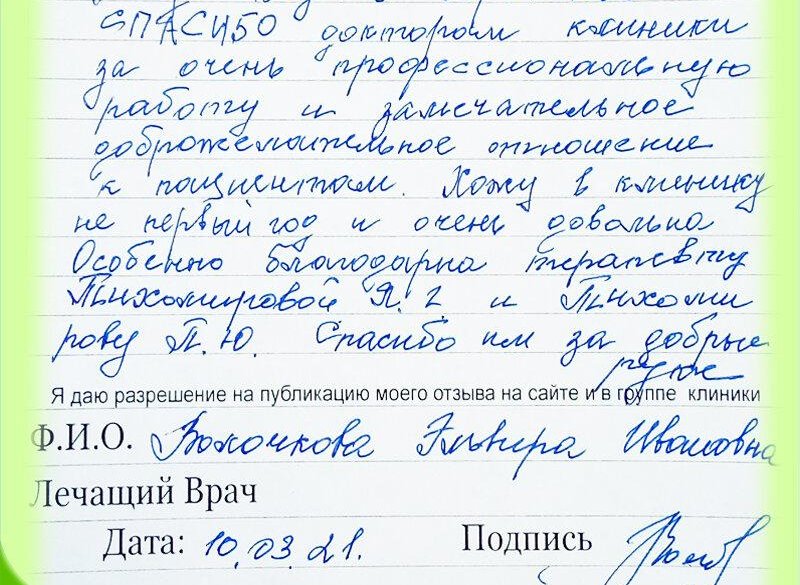 СПАСИБО докторам клиники
за очень профессиональную
работу и замечательное
доброжелательное отношение
к пациентам. Хожу в клинику
не первый год и очень довольна
Особенно благодарна терапевту
Тихомировой Я. Г. и Тихоми
рову П. Ю. Спасибо им за добрые
руки
Я даю разрешение на публикацию моего отзыва на сайте и в группе клиники
Ф.И.О. Волочкова Эльвира Ивановна
Лечащий Врач
Дата: 10.03.21. Подпись